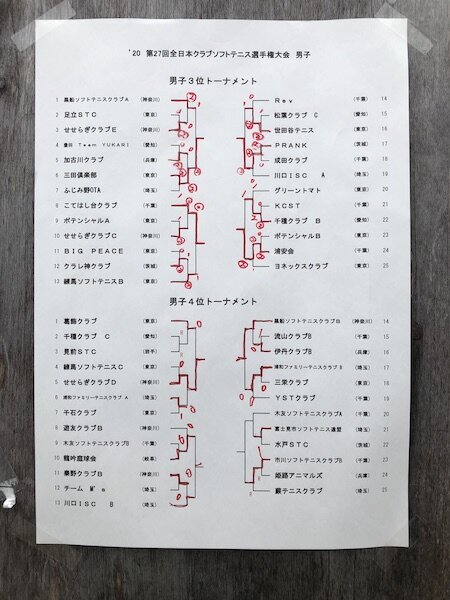 '20 第27回全日本クラブソフトテニス選手権大会 男子
男子3位トーナメント
1 黒船ソフトテニスクラブA (神奈川)
2 足立STC (東京)
3 せせらぎクラブE (神奈川)
4 豊田 Team YUKARI (愛知)
5 加古川クラブ (兵庫)
6 三田倶楽部 (東京)
7 ふじみ野OTA (埼玉)
8 こてはし台クラブ (千葉)
9 ポテンシャルA (東京)
10 せせらぎクラブC (神奈川)
11 BIG PEACE (東京)
12 クラレ神クラブ (茨城)
13 練馬ソフトテニスB (東京)
Rev (千葉) 14
松葉クラブ C (愛知) 15
世田谷テニス (東京) 16
PRANK (茨城) 17
成田クラブ (千葉) 18
川口ISC A (埼玉) 19
グリーントマト (東京) 20
KCST (千葉) 21
千種クラブ B (愛知) 22
ポテンシャルB (東京) 23
浦安会 (千葉) 24
ヨネックスクラブ (東京) 25
男子4位トーナメント
1 葛飾クラブ (東京)
2 千種クラブ C (愛知)
3 見前STC (岩手)
4 練馬ソフトテニスC (東京)
5 せせらぎクラブD (神奈川)
6 浦和ファミリーテニスクラブ A (埼玉)
7 千石クラブ (東京)
8 遊友クラブB (神奈川)
9 木友ソフトテニスクラブB (千葉)
10 龍吟庭球会 (岐阜)
11 秦野クラブB (神奈川)
12 チーム M's (埼玉)
13 川口ISC B (埼玉)
黒船ソフトテニスクラブB (神奈川) 14
流山クラブB (千葉) 15
伊丹クラブB (兵庫) 16
浦和ファミリーテニスクラブB (埼玉) 17
三栄クラブ (東京) 18
YSTクラブ (千葉) 19
木友ソフトテニスクラブA (千葉) 20
富士見市ソフトテニス連盟 (埼玉) 21
水戸STC (茨城) 22
市川ソフトテニスクラブB (千葉) 23
姫路アニマルズ (兵庫) 24
蕨テニスクラブ (埼玉) 25